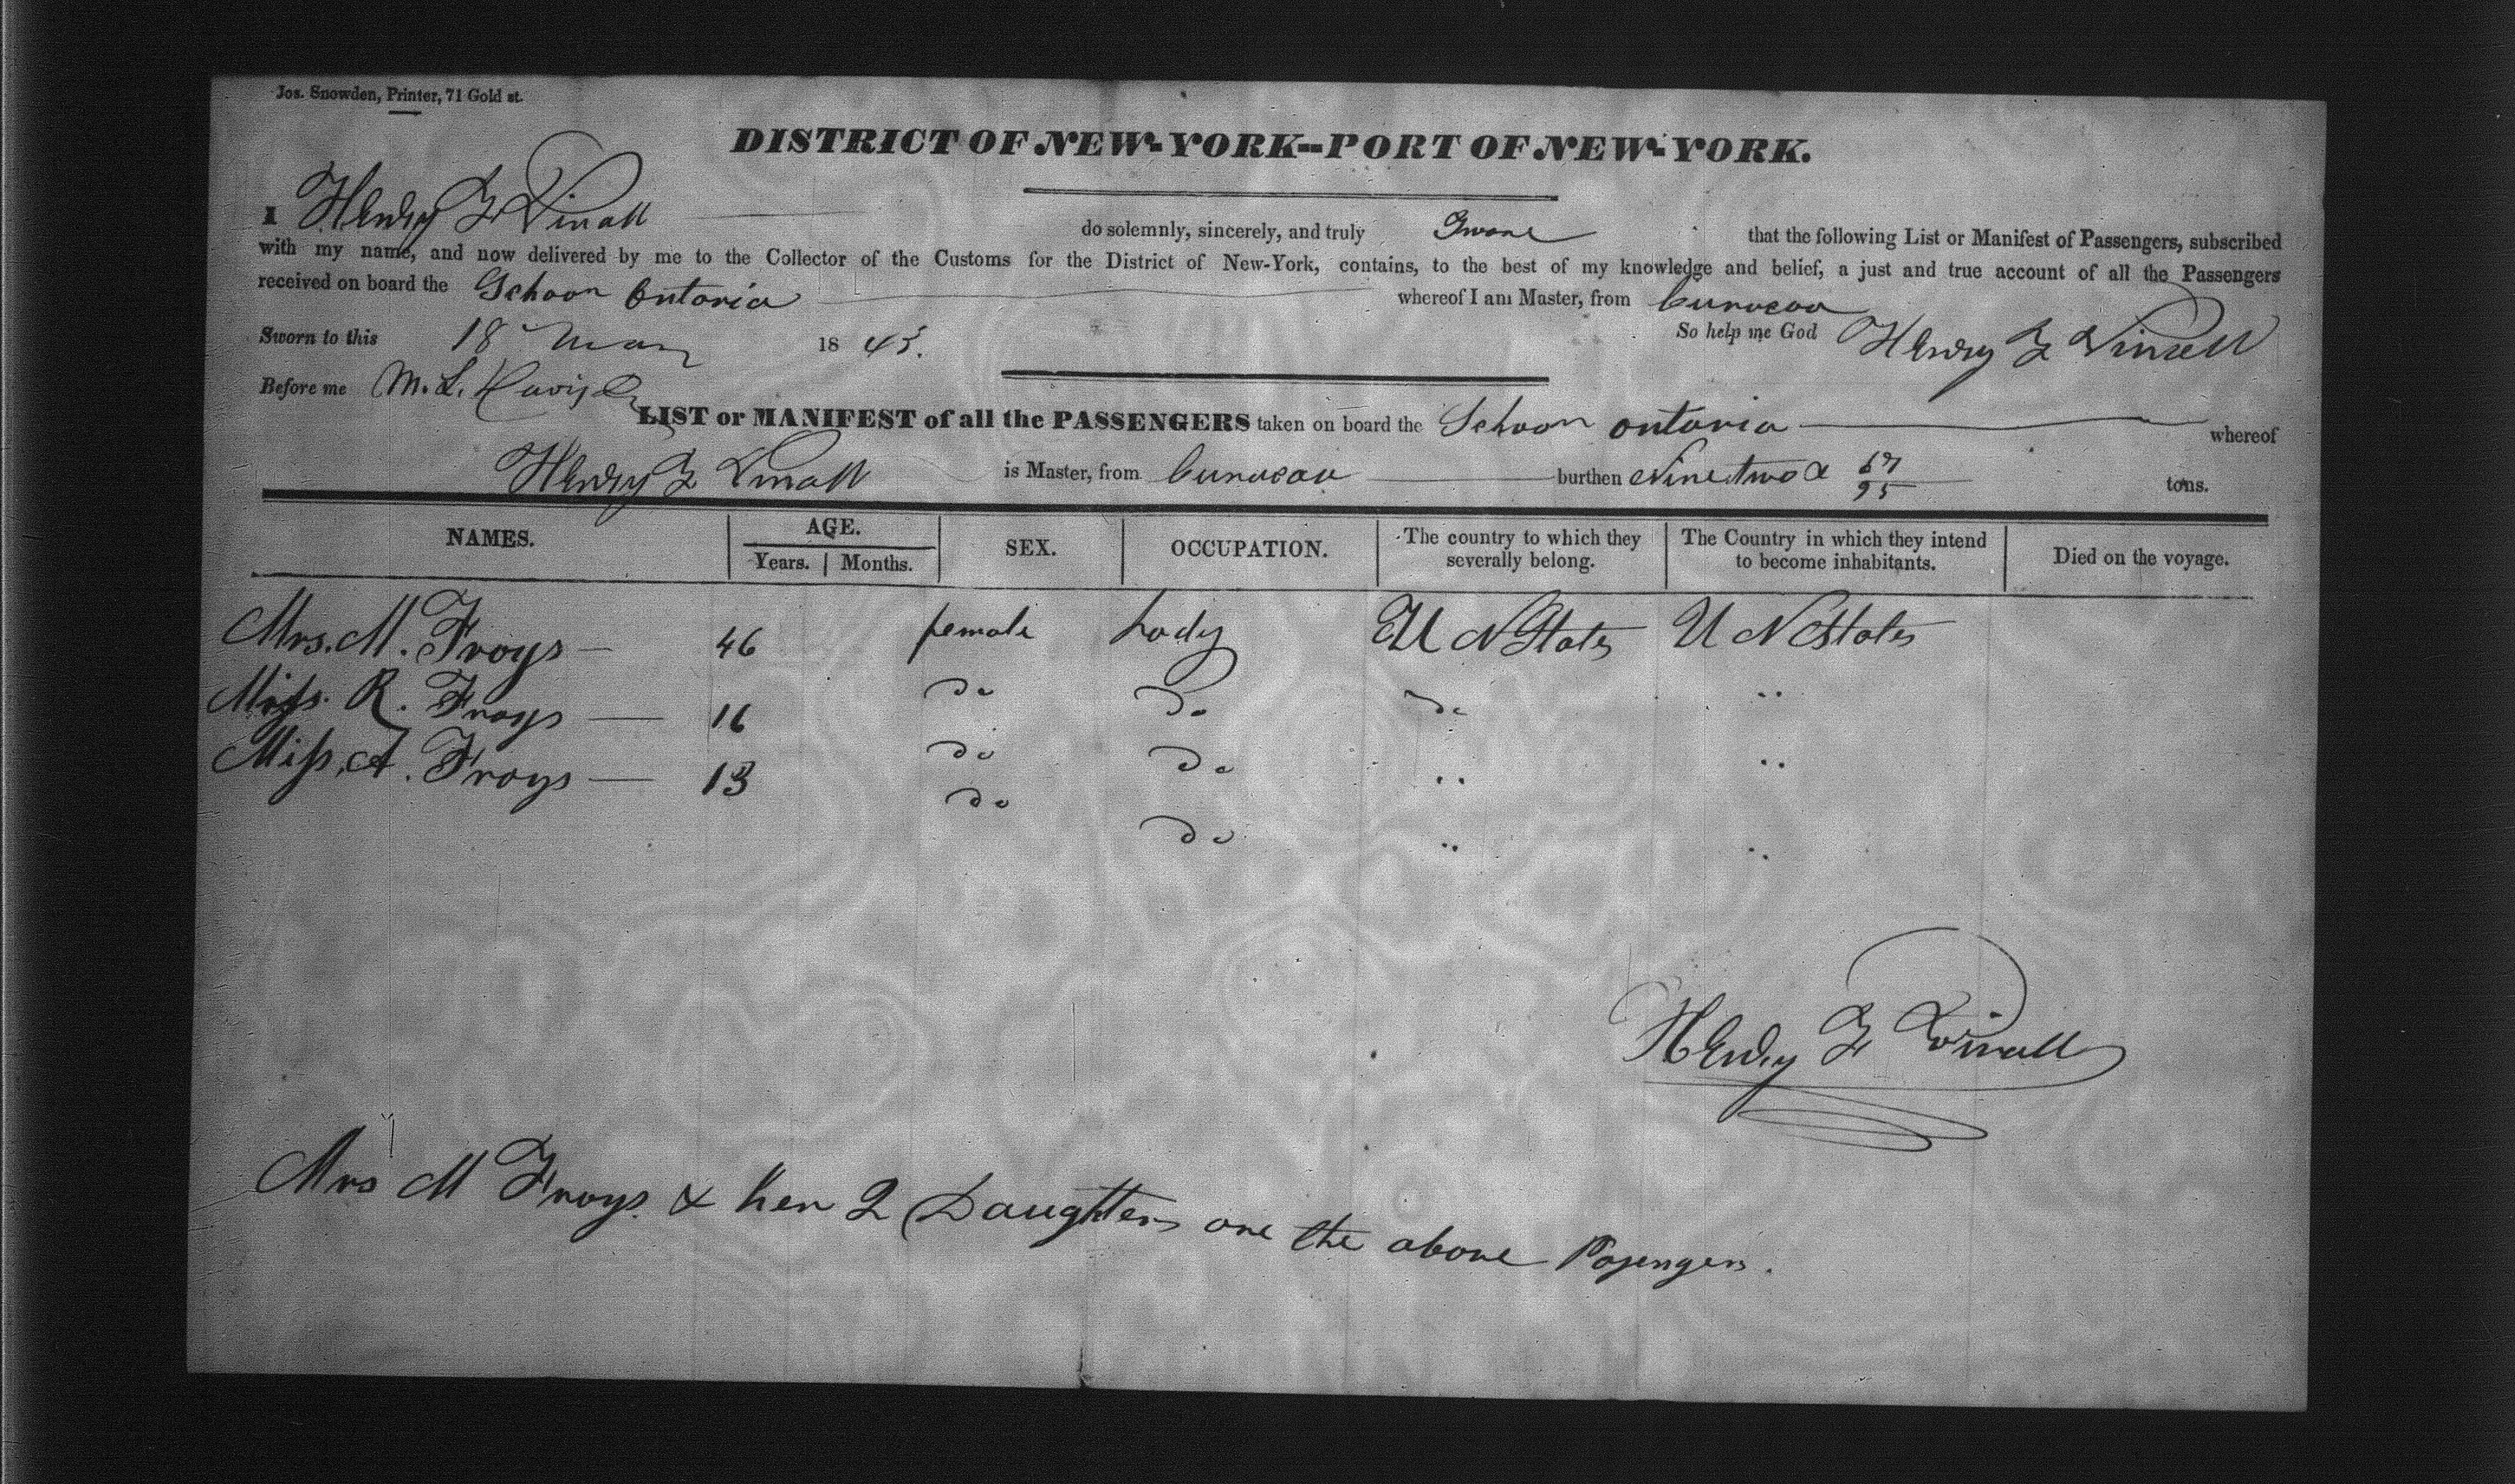 Jos. Snowden, Printer, 71 Gold st.
DISTRICT OF NEW-YORK--PORT OF NEW-YORK.
I Henry F Vinall do solemnly, sincerely, and truly Swore that the following List or Manifest of Passengers, subscribed
with my name, and now delivered by me to the Collector of the Customs for the District of New-York, contains, to the best of my knowledge and belief, a just and true account of all the Passengers
received on board the Schoon Ontario whereof I am Master, from Curacoa
Sworn to this 18 May 1843. So help me God Henry F Vinall
Before me M. L. Davis
LIST or MANIFEST of all the PASSENGERS taken on board the Schoon Ontario whereof
Henry F Vinall is Master, from Curacao burthen Ninetwo & 67/95 tons.
NAMES. AGE. SEX. OCCUPATION. The country to which they severally belong. The Country in which they intend to become inhabitants. Died on the voyage.
Years. Months.
Mrs. M. Froys — 46 female Lady U N States U N States
Miss. R. Froys — 16 Do Do Do "
Miss. A. Froys — 13 Do Do " "
Do Do " "
Henry F Vinall
Mrs M Froys & her 2 Daughters are the above Pasengers.